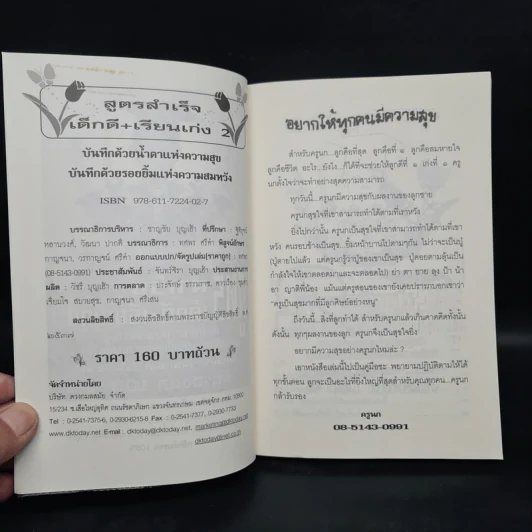 สูตรสำเร็จ
เด็กดี+เรียนเก่ง 2
บันทึกด้วยน้ำตาแห่งความสุข
บันทึกด้วยรอยยิ้มแห่งความสมหวัง
ISBN 978-611-7224-02-7
บรรณาธิการบริหาร : ชาญชัย บุญเฮ้า ที่ปรึกษา :
วัฒนา ปากดี บรรณาธิการ : ทศพร ศรีคำ พิสูจน์อักษร
กาญจนา ศรีคำ ออกแบบปก/จัดรูปเล่ม(ราคาถูก) :
(08-5143-0991) ประชาสัมพันธ์ : จันทร์จิรา บุญเฮ้า ประสานงานการ
ผลิต : วัชรี บุญเฮ้า การตลาด :
สบายสุข, กาญจนา ศรีเสน
สงวนลิขสิทธิ์ : สงวนลิขสิทธิ์ตามพระราชบัญญัติลิขสิทธิ์ พ.ศ.
๒๕๓๗
ราคา 160 บาทถ้วน
จัดจำหน่ายโดย
บริษัท ดวงกมลสมัย จำกัด
15/234 ซ.เสือใหญ่อุทิศ ถนนรัชดาภิเษก แขวงจันทรเกษม เขตจตุจักร กทม. 10900
Tel : 0-2541-7375-6, 0-2930-6215-8 Fax : 0-2541-7377, 0-2930-7733
www.dktoday.net E-mail : dktoday@dktoday.net, marketing@dktoday.net
อยากให้ทุกคนมีความสุข
สำหรับครูนก...ลูกคือที่สุด ลูกคือที่ ๑ ลูกคือลมหายใจ
ลูกคือชีวิต อะไร...ยังไง...ก็ได้ที่จะช่วยให้ลูกดีที่ ๑ เก่งที่ ๑ ครู
นกตั้งใจว่าจะทำอย่างสุดความสามารถ
ทุกวันนี้...ครูนกมีความสุขกับผลงานของลูกชาย
ครูนกสุขใจที่เขาสามารถทำได้ตามที่เราหวัง
ยิ่งไปกว่านั้น ครูนกเป็นสุขใจที่เขาสามารถทำได้ตามที่เรา
หวัง คนรอบข้างเป็นสุข...ยิ้มหน้าบานไปตามๆกัน ไม่ว่าจะเป็นปู่
(ปู่ตายไปแล้ว แต่ครูนกรู้ว่าปู่ของเขาเป็นสุข ปู่คอยตามลุ้นเป็น
กำลังใจให้เขาตลอดมาและจะตลอดไป) ย่า ตา ยาย ลุง ป้า น้า
อา ญาติพี่น้อง แม้แต่ครูสอนของเขายังเคยปรารภบอกเขาว่า
"ครูเป็นสุขมากที่มีลูกศิษย์อย่างหนู"
ถึงวันนี้...สิ่งที่ลูกทำได้ สำหรับครูนกแล้วเกินคาดคิดทั้งนั้น
ดังนั้น ทุกๆผลงานของลูก ครูนกจึงเป็นสุขใจยิ่ง
อยากมีความสุขอย่างครูนกไหมล่ะ ?
เอาหนังสือเล่มนี้ไปเป็นคู่มือซะ พยายามปฏิบัติตามให้ได้
ทุกขั้นตอน ลูกจะเป็นอะไรที่ยิ่งใหญ่ที่สุดสำหรับคุณทุกคน...ครูนก
กล้ารับรอง
ครูนก
08-5143-0991